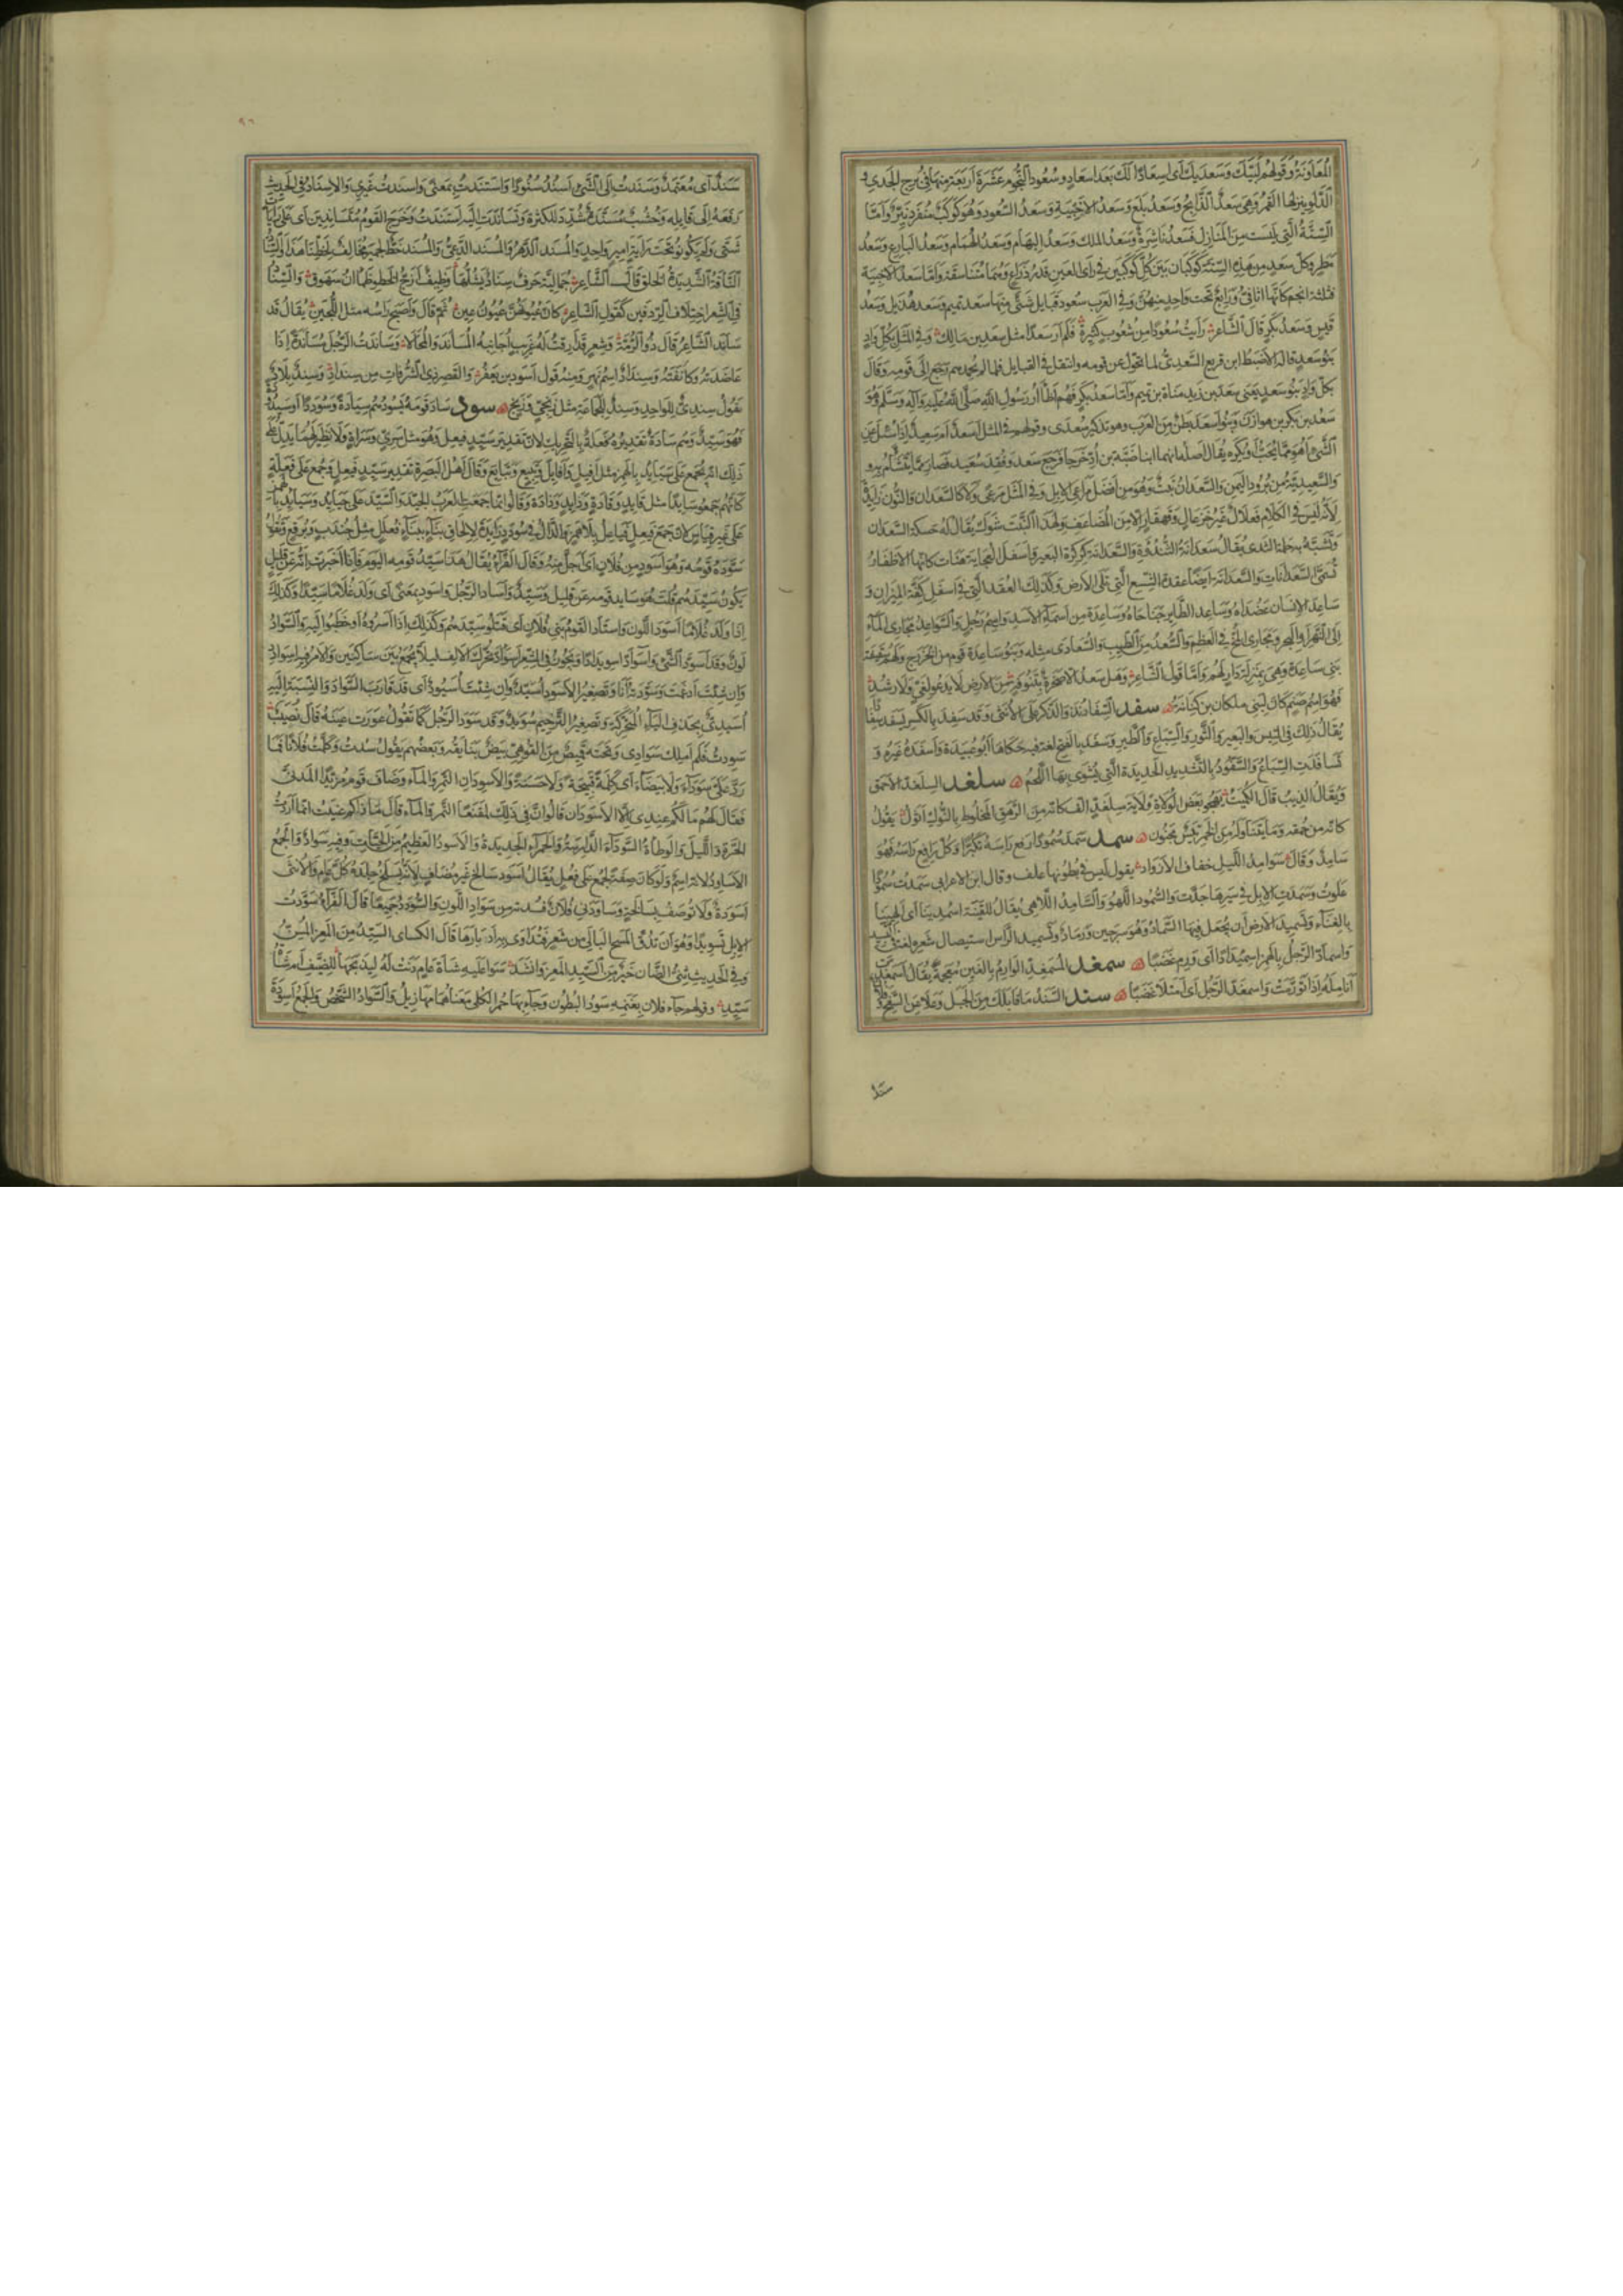 المعاونة وقولهم لبيك وسعديك أي اسعادا لك بعد اسعاد وسعود النجوم عشرة أربعة منها في برج الجدي و
الدلو ينزلها القمر وهي سعد الذابح وسعد بلع وسعد الاخبية وسعد السعود وهو كوكب منفرد نير وأما
الستة التي ليست من المنازل فسعد ناشرة وسعد الملك وسعد البهام وسعد الهمام وسعد البارع وسعد
مطر وكل سعد من هذه الستة كوكبان بين كل كوكبين في رأى العين قدر ذراع وهما متناسقة واما سعد الاخبية
فثلثة انجم كانها اثافي ورابع تحت واحد منهن وفي العرب سعود قبايل شتى منها سعد تميم وسعد هذيل وسعد
قيس وسعد بكر قال الشاعر رأيت سعودا من شعوب كثيرة فلم ار سعدا مثل سعد بن مالك وفي المثل بكل واد
بنو سعد قاله الاضبط ابن قريع السعدي لما تحول عن قومه وانتقل في القبايل فلما لم يحمدهم رجع الى قومه وقال
بكل واد بنو سعد يعنى سعد بن زيد مناة بن تميم وأما سعد بكر فهم اظآر رسول الله صلى الله عليه وآله وسلم وهو
سعد بن بكر بن هوازن وبنو اسعد بطن من العرب وهو تذكير سعدى وقولهم في المثل اسعد ام سعيد اذا سئل عن
الشئ أهو مما يحب او يكره يقال اصله انهما ابنا ضبة بن اد خرجا فرجع سعد وفقد سعيد فصار مما يتشأم به و
والسعيدية من برود اليمن والسعدان نبت وهو من افضل مراعي الابل وفي المثل مرعى ولا كالسعدان والنون زايدة
لانه ليس في الكلام فعلال غير خزعال وقهقار الا من المضاعف ولهذا النبت شوك يقال له حسكة السعدان
وتشبه به حلمة الثدي يقال سعدانة الثندؤة والسعدانة كركرة البعير واسفل العجاية هنات كانها الاظفار
تسمى السعدانات والسعدانة ايضا عقدة الشسع التي تلى الارض وكذلك العقد التي في اسفل كفة الميزان و
ساعدا الانسان عضداه وساعدا الطاير جناحاه وساعدة من اسماء الاسد واسم رجل والسواعد مجاري الماء
الى النهر او البحر ومجاري المخ في العظم والسعد من الطيب والسعادى مثله وبنو ساعدة قوم من الخزرج ولهم سقيفة
بني ساعدة وهي بمنزلة دار لهم واما قول الشاعر وهل سعد الا صخرة بتنوفة من الارض لا يدعو لغي ولا رشد
فهو اسم صنم كان لبني ملكان بن كنانة سفد السفاد نزو الذكر على الانثى وقد سفد بالكسر يسفد سفادا
يقال ذلك في التيس والبعير والثور والسباع والطير وسفد بالفتح لغة فيه حكاها أبو عبيدة وأسفده غيره و
تسافدت السباع والسفود بالتشديد الحديدة التي يشوى بها اللحم سلغد السلغد الاحمق
ويقال الذيب قال الكميت يهجو بعض الولاة ولاية سلغد الف كانه من الرهق المخلوط بالنوك اثول يقول
كانه من حمقه وما يتناوله من الخمر تيس مجنون سمد سمد سمودا رفع راسه تكبرا وكل رافع راسه فهو
سامد وقال سوامد الليل خفاف الازواد يقول ليس في بطونها علف وقال ابن الاعرابي سمدت سمودا
علوت وسمدت الابل في سيرها جدت والسمود اللهو والسامد اللاهي يقال للقينة اسمدينا أي الهينا
بالغناء وتسميد الارض أن يجعل فيها السماد وهو سرجين ورماد وتسميد الراس استيصال شعره لغة في التسبيد
واسمأد الرجل بالهمز اسميدادا أي ورم غضبا سمغد السمغد الوارم بالغين معجمة يقال اسمغدت
أنامله اذا تورمت واسمغد الرجل اي امتلأ غضبا سند السند ما قابلك من الجبل وعلا عن السفح وفلان
سند
٩٦
سند أي معتمد وسندت الى الشئ اسند سنودا واستندت بمعنى واسندت غيري والاسناد في الحديث
رفعه الى قايله وخشب مسندة شدد للكثرة وتساندت اليه استندت وخرج القوم متساندين أي على رايات
شتى ولم يكونوا تحت راية امير واحد والمسند الدهر والمسند الدعي والمسند خط لحمير مخالف لخطنا هذا والسناد
الناقة الشديدة الخلق قال الشاعر جمالية حرف سناد يشلها وظيف ازج الخطو ظمآن سهوق والسناد
في الشعر اختلاف الردفين كقول الشاعر كان عيونهن عيون عين ثم قال واصبح راسه مثل اللجين يقال قد
ساند الشاعر قال ذو الرمة وشعر قد ارقت له غريب اجانبه المساند والمحالا وساندت الرجل مساندة إذا
عاضدته وكانفته وسنداد اسم نهر ومنه قول اسود بن يعفر والقصر ذي الشرفات من سنداد وسند بلاد
تقول سندي للواحد وسند للجماعة مثل زنجي وزنج سود ساد قومه يسودهم سيادة وسوددا وسيدودة
فهو سيد وهم سادة تقديره فعلة بالتحريك لان تقدير سيد فعيل وهو مثل سري وسراة ولا نظير لهما يدل على
ذلك انه يجمع على سيايد بالهمز مثل افيل وافايل وتبيع وتبايع وقال اهل البصرة تقدير سيد فيعل وجمع على فعلة
كانهم جمعوا سايدا مثل قايد وقادة وذايد وذادة وقالوا انما جمعت العرب الجيد والسيد على جيايد وسيايد بالهمز
على غير قياس لان جمع فيعل فياعل بلا همز والدال في سودد زايدة للالحاق ببناء فعلل مثل جندب وبرقع وتقول
سوده قومه وهو اسود من فلان أي أجل منه وقال الفراء يقال هذا سيد قومه اليوم فاذا اخبرت انه عن قليل
يكون سيدهم قلت هو سايد قومه عن قليل وسيد وأساد الرجل واسود بمعنى أي ولد غلاما سيدا وكذلك
إذا ولد غلاما اسود اللون واستاد القوم بني فلان أي قتلوا سيدهم وكذلك إذا أسروه أو خطبوا اليه والسواد
لون وقد اسود الشئ واسواد اسويدادا ويجوز في الشعر اسوأد تحرك الالف ليلا يجمع بين ساكنين والامر منه اسوادد
وان شئت ادغمت وسودته أنا وتصغير الاسود أسيد وان شئت أسيود أي قد قارب السواد والنسبة اليه
أسيدي بحذف الياء المتحركة وتصغير الترخيم سويد وقد سود الرجل كما تقول عورت عينه قال نصيب
سودت فلم املك سوادي وتحته قميص من القوهي بيض بنايقه وبعضهم يقول سدت وكلمت فلانا فما
رد على سوداء ولا بيضاء أي كلمة قبيحة ولا حسنة والاسودان التمر والماء وضاف قوم مزبدا المدني
فقال لهم ما لكم عندي الا الاسودان قالوا ان في ذلك لمقنعا التمر والماء قال ما ذاكم عنيت انما أردت
الحرة والليل والوطأة السوداء الدارسة والحمراء الجديدة والاسود العظيم من الحيات وفيه سواد والجمع
الاساود لانه اسم ولو كان صفة لجمع على فعل يقال اسود سالخ غير مضاف لانه يسلخ جلده كل عام والانثى
اسودة ولا توصف بسالخة وساودني فلان فسدته من سواد اللون والسودد جميعا قال الفراء سودت
الابل تسويدا وهو ان تدق المسح البالي من شعر فتداوى به ادبارها قال الكساي السيد من المعز المسن
وفي الحديث ثني الضأن خير من السيد المعز وانشد سواء عليه شاة عام دنت له ليذبحها للضيف ام شاة
سيد وقولهم جاء فلان بغنمه سود البطون وجاء بها حمر الكلى معناهما مهازيل والسواد الشخص والجمع أسودة